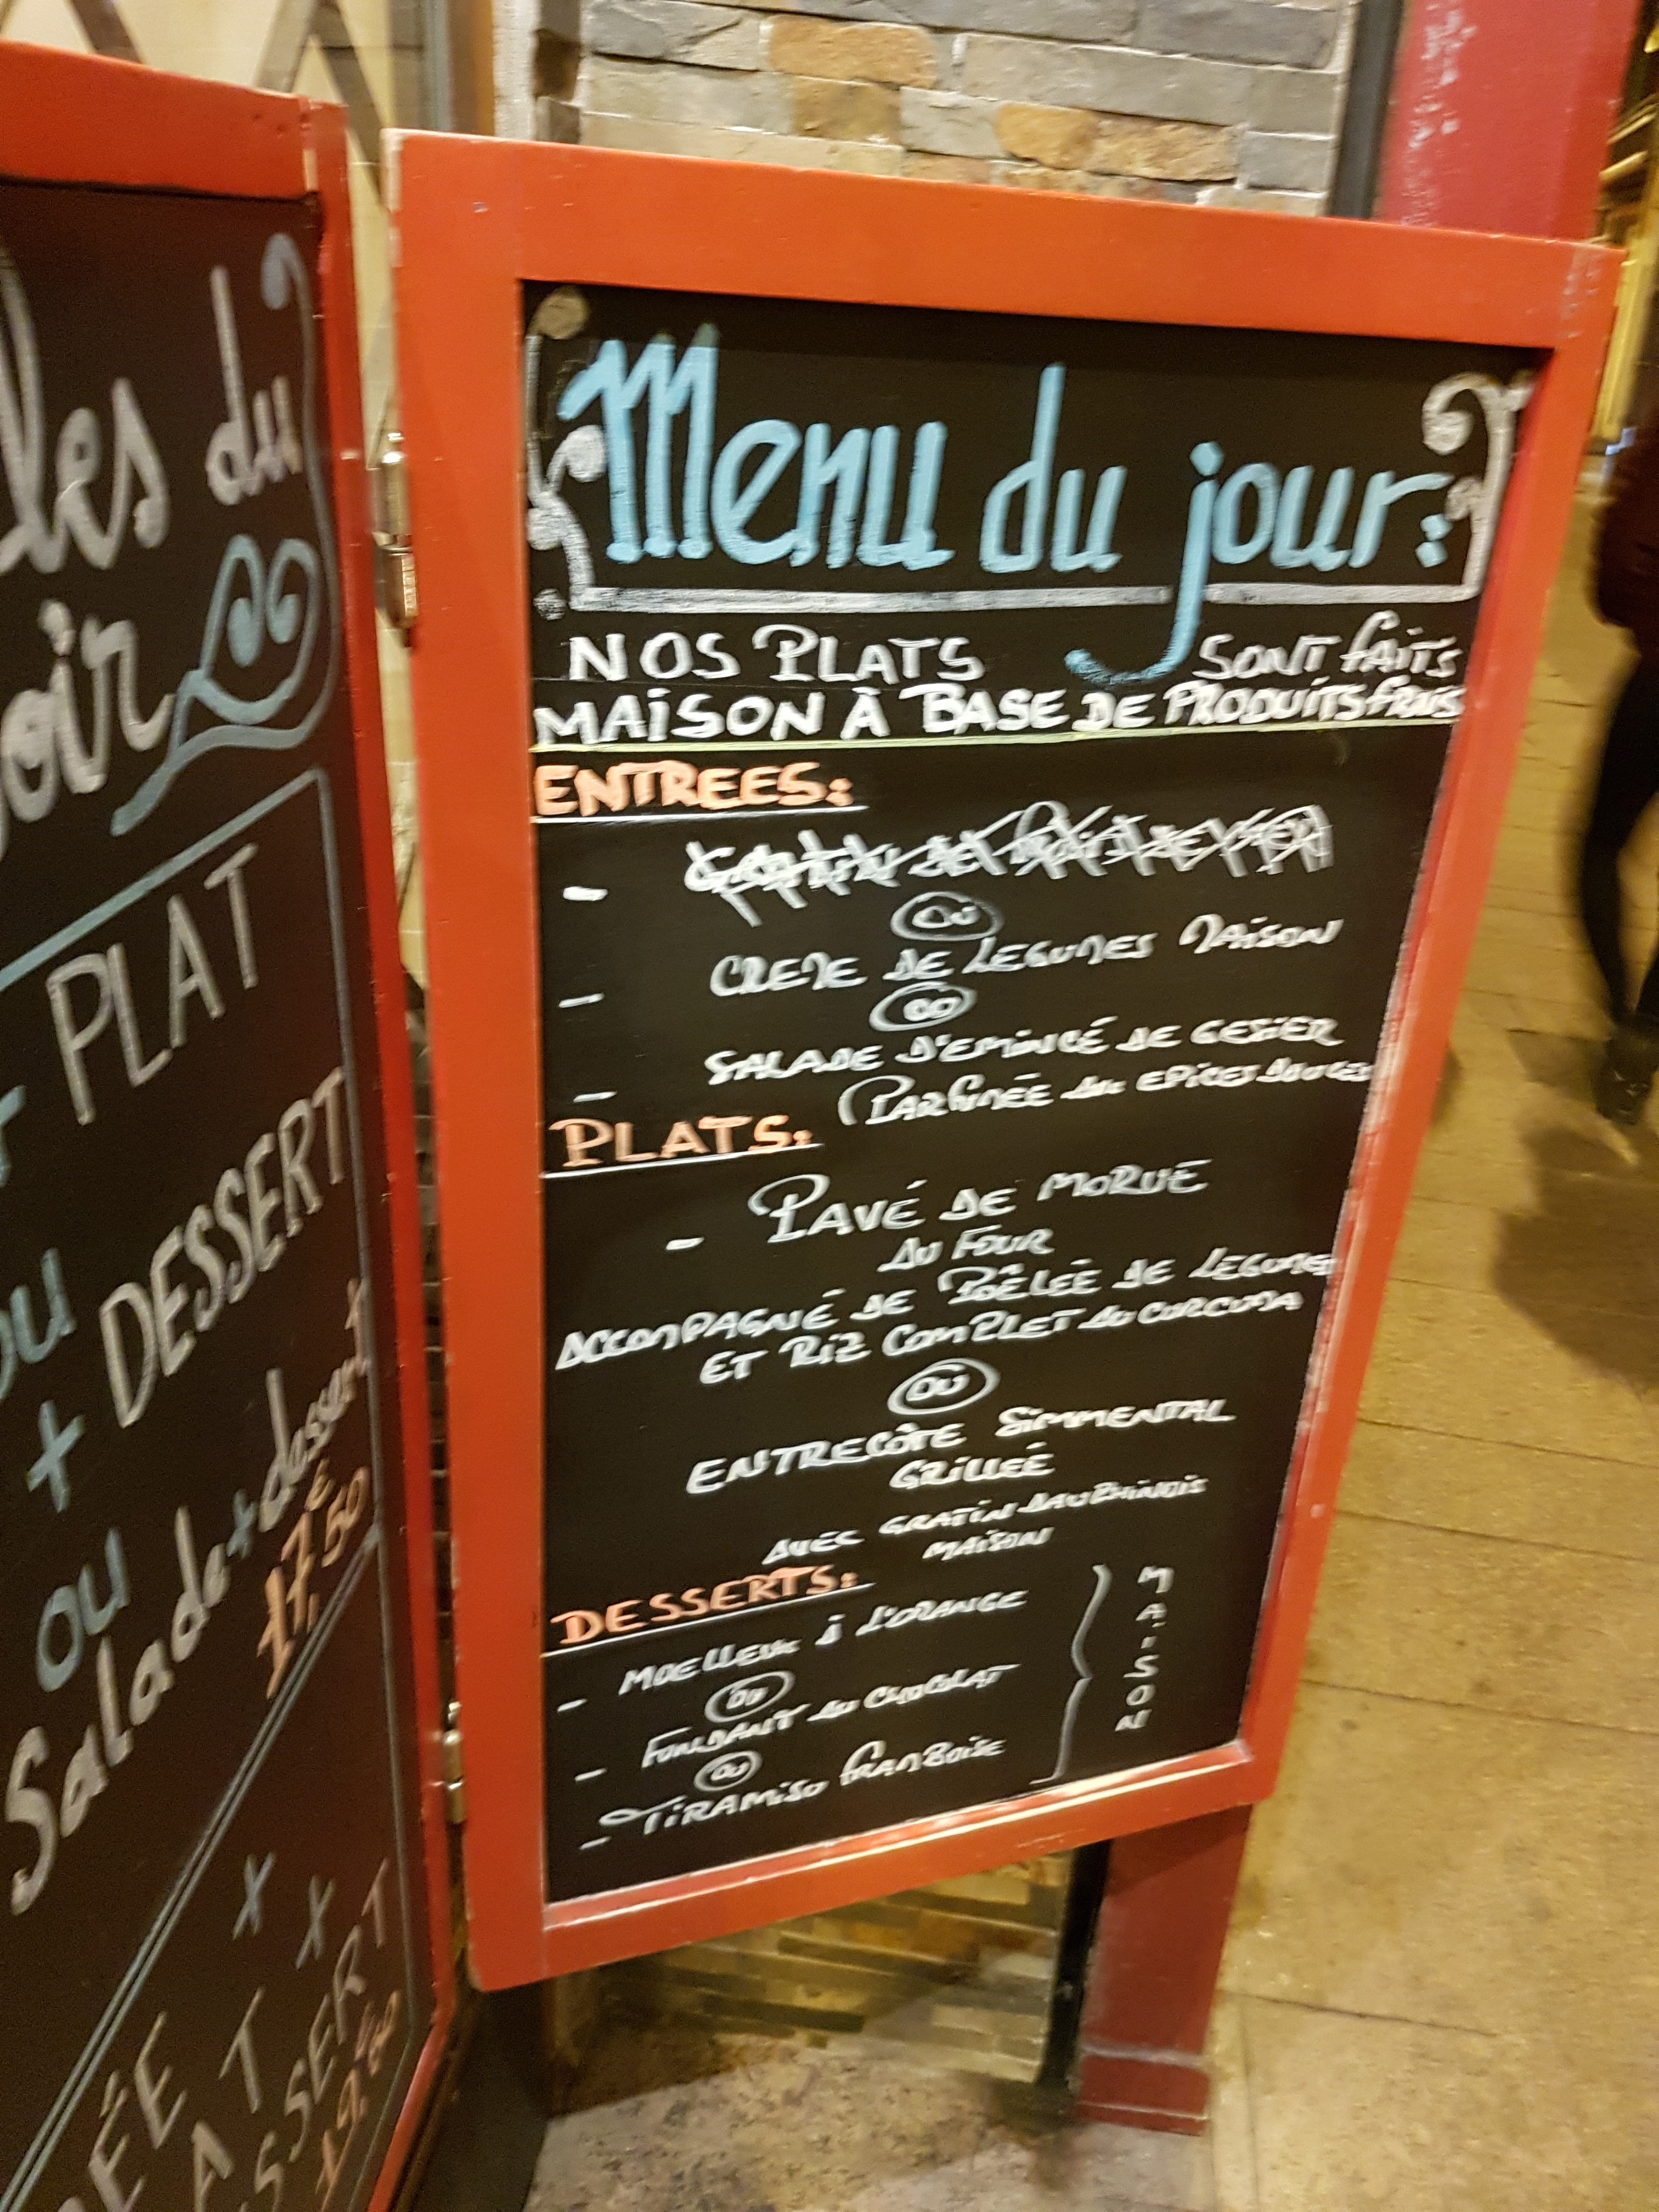 les du
oir
PLAT
ou
+ DESSERT
ou
Salade + dessert
17,50 €
+
+
ÉE
Menu du jour :
NOS PLATS SONT faits
MAISON À BASE DE PRODUITS frais
ENTREES:
-
ou
- CREME DE LEGUMES MAISON
ou
- SALADE D'EMINCÉ DE GESIER
PARfumÉE Au EPICES DOUCES
PLATS:
- PAVÉ DE MORUE
AU FOUR
ACCOMPAGNÉ DE POÊLÉE DE LEGUMES
ET RIZ COMPLET AU CURCUMA
OU
ENTRECÔTE SIMMENTAL
GRILLÉE
AVEC GRATIN DAUPHINOIS
MAISON
DESSERTS:
- MOELLEUX À L'ORANGE
OU
- FONDANT AU CHOCOLAT
OU
- TIRAMISU FRAMBOISE
MAISON